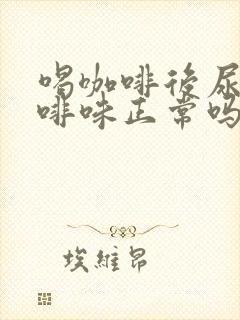 喝咖啡後尿
啡味正常吗
埃維昂